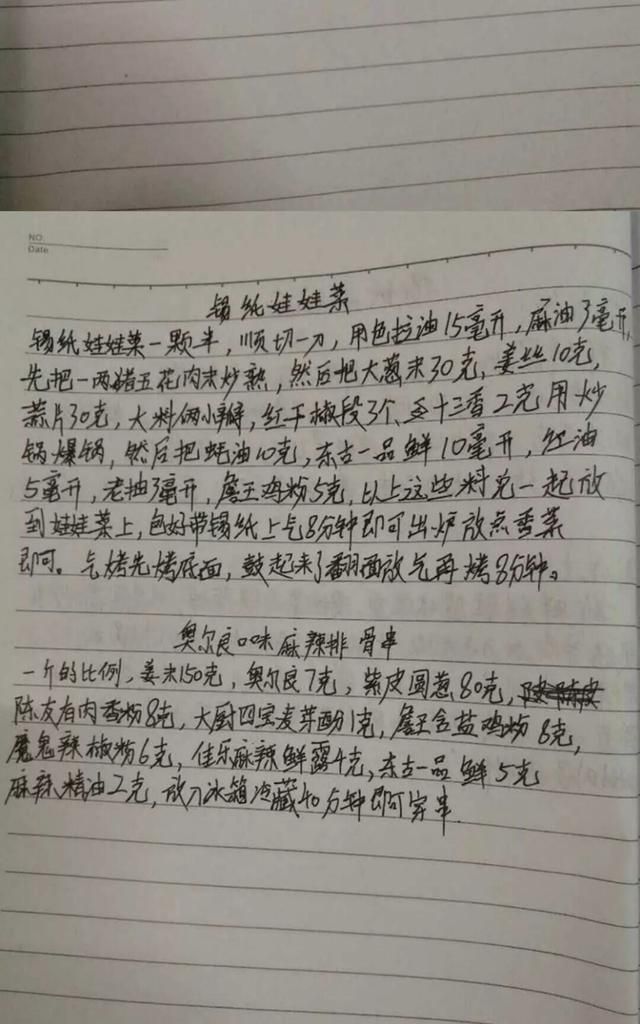 NO.
Date
锡纸娃娃菜
锡纸娃娃菜一颗半，顺切一刀，用色拉油15毫升，麻油3毫升，
先把一两猪五花肉末炒熟，然后把大葱末30克，姜丝10克，
蒜片30克，大料俩小瓣，红干椒段3个、王十三香2克用炒
锅爆锅，然后把蚝油10克，东古一品鲜10毫升，红油
5毫升，老抽3毫升，詹王鸡粉5克，以上这些料兑一起放
到娃娃菜上，包好带锡纸上气8分钟即可出炉放点香菜
即可。气烤先烤底面，鼓起来了翻面放气再烤8分钟。
奥尔良口味麻辣排骨串
一斤的比例，姜末150克，奥尔良7克，紫皮圆葱80克，
陈友有肉香粉8克，大厨四宝麦芽酚1克，詹王含盐鸡粉8克，
魔鬼辣椒粉6克，佳乐麻辣鲜露4克，东古一品鲜5克
麻辣精油2克，放入冰箱冷藏40分钟即可穿串